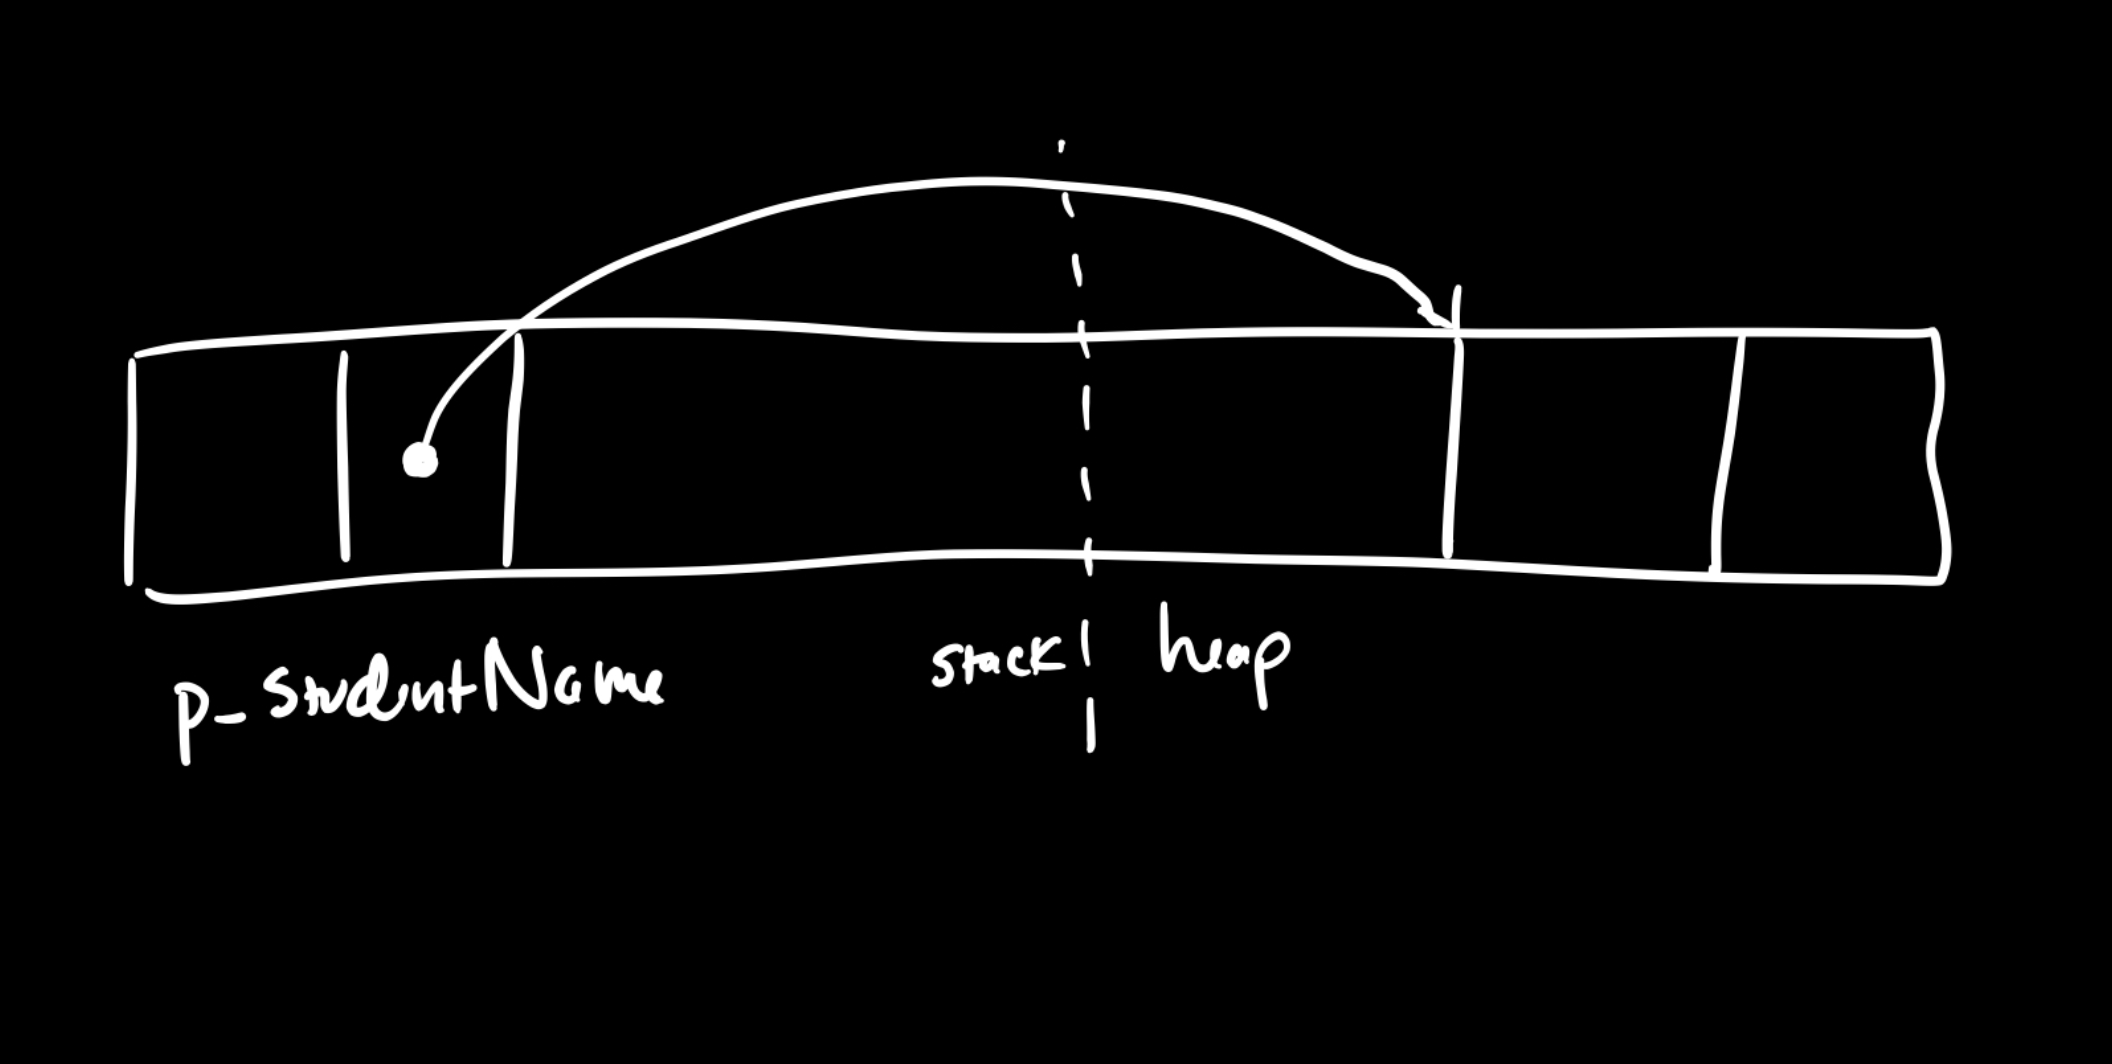 p_studentName
stack heap